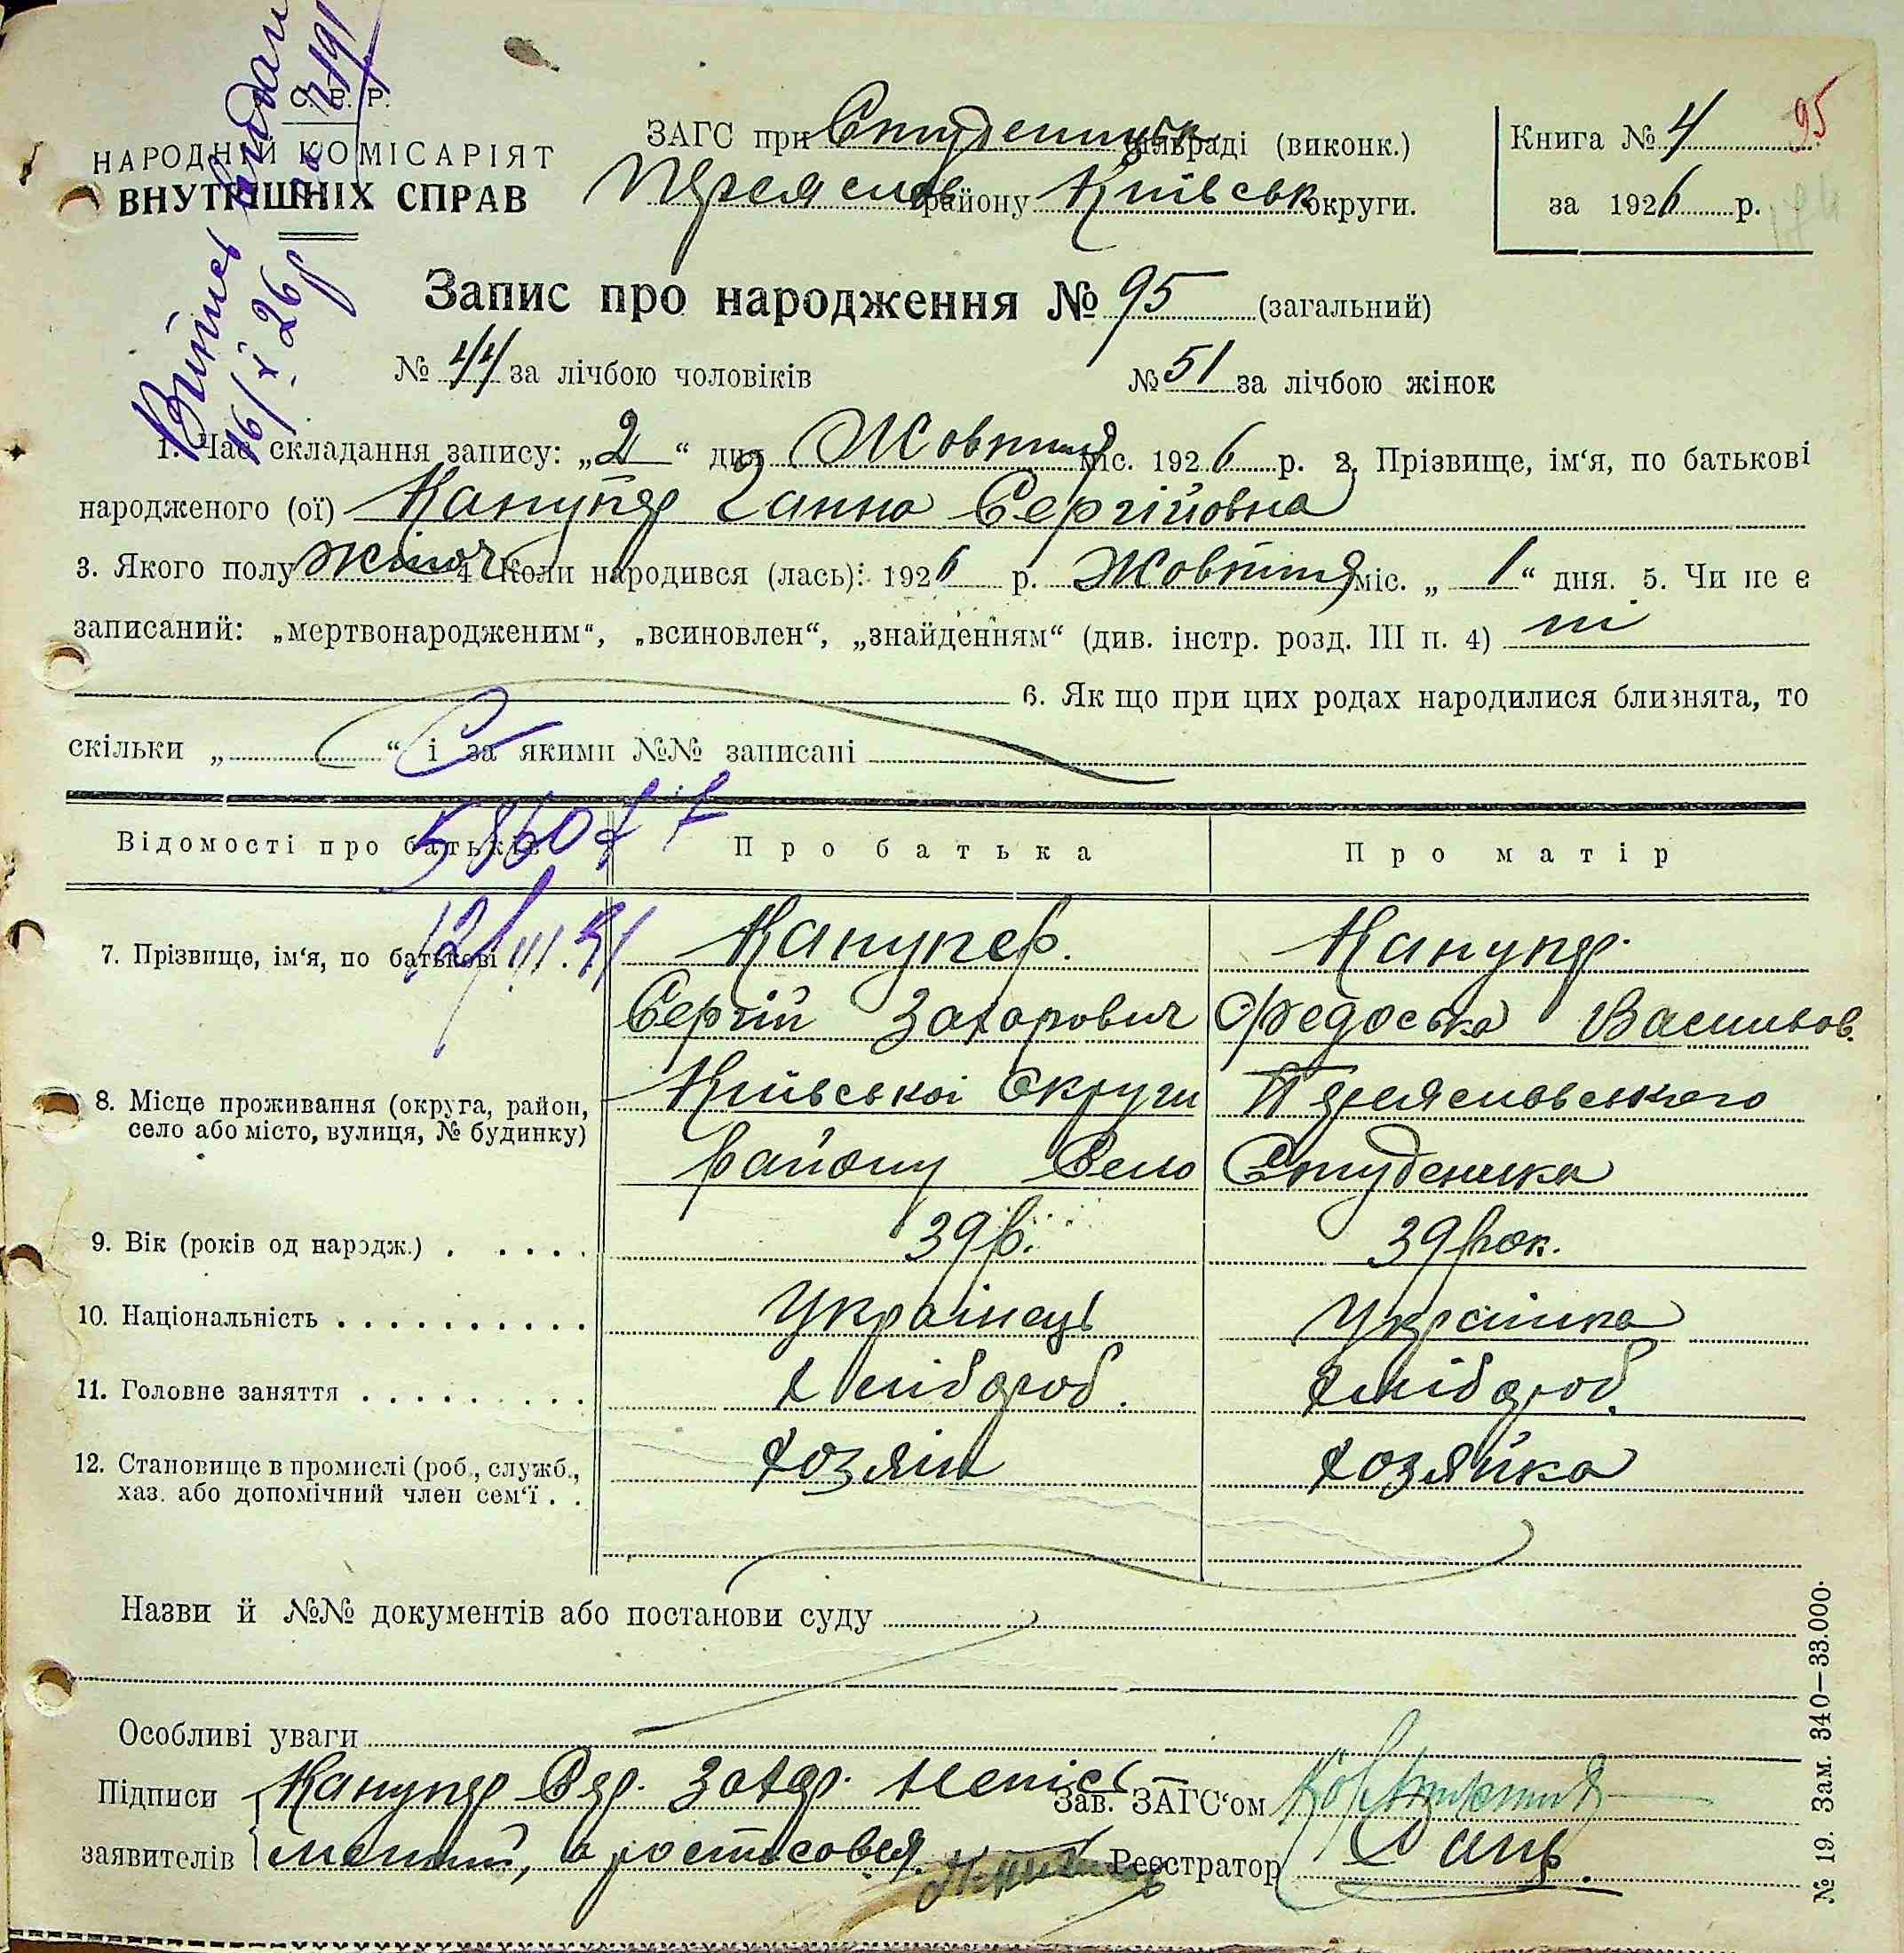 С. Р. Р.
НАРОДНІЙ КОМІСАРІЯТ
ВНУТРІШНІХ СПРАВ
Витяг видан
за № 219
16/X 26 р
ЗАГС при Студениць сільраді (виконк.)
Переяслов району Київськ округи.
Книга № 4
95
за 1926 р.
174
Запис про народження № 95 (загальний)
№ 44 за лічбою чоловіків
№ 51 за лічбою жінок
1. Час складання запису: „2“ дня Жовтня міс. 1926 р. 2. Прізвище, ім‘я, по батькові
народженого (ої) Канупер Ганна Сергійовна
3. Якого полу жіноч 4. Коли народився (лась): 1926 р. Жовтня міс. „1“ дня. 5. Чи не є
записаний: „мертвонародженим“, „всиновлен“, „знайденням“ (див. інстр. розд. III п. 4) ні
6. Як що при цих родах народилися близнята, то
скільки „ “ і за якими №№ записані
Відомості про батьків
Про батька
Про матір
12/III.51
7. Прізвище, ім‘я, по батькові
Канупер.
Канупер.
Сергій Захарович
Федоська Васильов.
8. Місце проживання (округа, район,
село або місто, вулиця, № будинку)
Київської Округи Переясловського
району Село Студеника
9. Вік (років од нарэдж.)
39 р.
39 рок.
10. Національність
Українець
Українка
11. Головне заняття
Хлібороб.
хлібороб.
12. Становище в промислі (роб., служб.,
хаз. або допомічний член сем‘ї
хозяін
хозяйка
Назви й №№ документів або постанови суду
Особливі уваги
Підписи
заявителів
Канупер Сер. Захар. непісь
менний,
Зав. ЗАГС‘ом
Реєстратор
№ 19. Зам. 340—33.000.